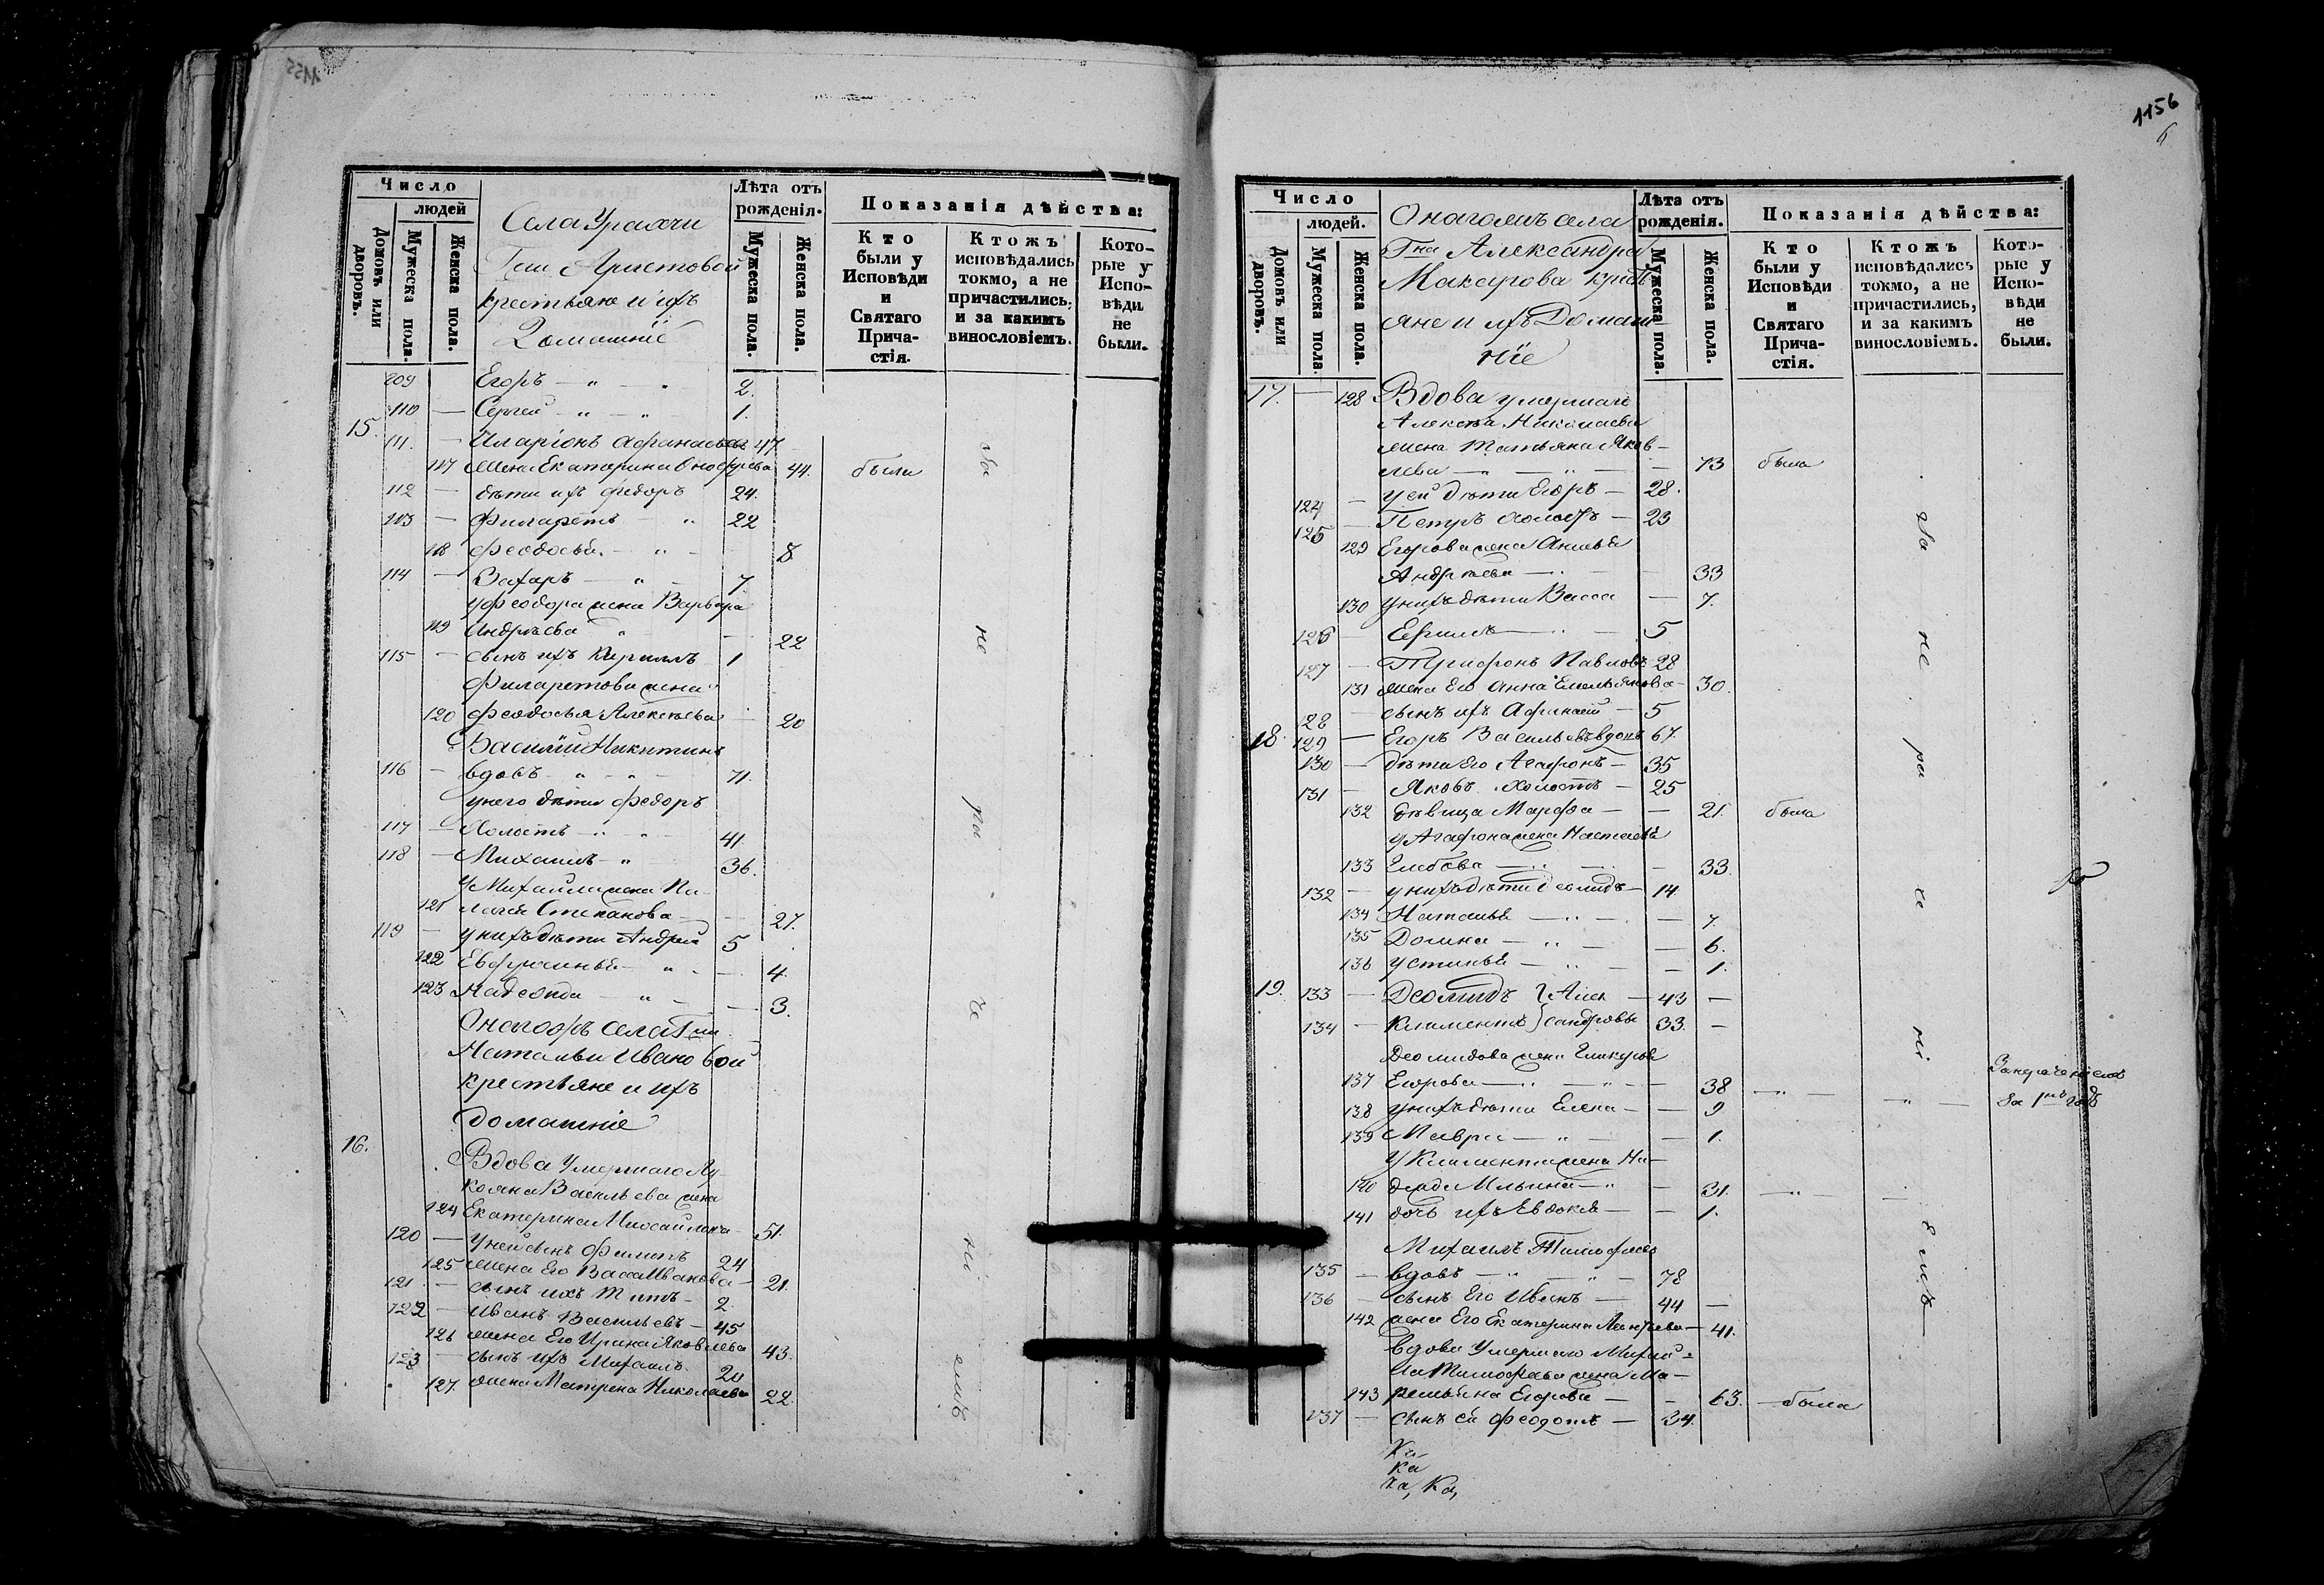 1155
Число
людей
Домовъ или дворовъ.
Мужеска пола.
Женска пола.
Села Урахчи
Гжи Аристовой
крестьяне и ихъ
Домашніе
Лѣта отъ рожденія.
Мужеска пола.
Женска пола.
Показанія дѣйства:
Кто были у Исповѣди и Святаго Причастія.
Ктожъ исповѣдались токмо, а не причастились, и за какимъ винословіемъ.
Которые у Исповѣди не были.
109 Егоръ — " — " 2.
110 — Сергей — " — " 1.
15.
111. — Иларіонъ Афанасьевъ 47
117 жена Екатерина Онофріева 44. были
112 — дѣти ихъ Федоръ 24.
113 — Филаретъ — " 22
118 Феодосья — " — 8
114 — Захаръ — " — 7
у Феодора жена Варвара
119 Андрѣева " — 22
115 — сынъ ихъ Кириллъ 1
Филаретова жена
120 Феодосья Алексѣева — 20
Василій Никитинъ
116 — вдовъ — " — " — 71.
у него дѣти Федоръ
117 — Холостъ — " — " 41.
118 — Михаилъ — " 36.
У Михаила жена Пе-
121 лагея Степанова — 27.
119 — у нихъ дѣти Андрей 5
122 Евфросинья — " — 4.
123 Надежда — " — 3.
Онагожъ села Гжи
Натальи Ивановой
крестьяне и ихъ
домашніе
16.
Вдова умершаго Лу-
кояна Васильева жена
124 Екатерина Михайлова — 51.
120 — у ней сынъ Филипъ 24
125 жена Его Васса Иванова — 21.
121 — сынъ ихъ Титъ — 2.
122 — Иванъ Васильевъ — 45
126 жена Его Ирина Яковлева 43.
123 — сынъ ихъ Михаилъ 20
127. жена Матрена Николаева 22.
За не ра че ні емъ
1156
6
Число
людей.
Домовъ или дворовъ.
Мужеска пола.
Женска пола.
Онагожъ села
Гна Александра
Макарова кресть
яне и ихъ Домаш-
ніе
Лѣта отъ рожденія.
Мужеска пола.
Женска пола.
Показанія дѣйства:
Кто были у Исповѣди и Святаго Причастія.
Ктожъ исповѣдались токмо, а не причастились, и за какимъ винословіемъ.
Которые у Исповѣди не были.
17. — 128 Вдова умершаго
Алексѣя Николаева
жена Татьяна Яков-
лева — " — " — 73 была
124 — у ей дѣти Егоръ — 28.
125 — Петръ холостъ — 23
129 Егорова жена Анисья
Андрѣева — " — 33
130 у нихъ дѣти Васса — 7.
126 — Ефимъ — " — 5
127 — Трифонъ Павловъ 28
131 жена Его Анна Емельянова — 30.
28 — сынъ ихъ Афанасій — 5
18. 129 — Егоръ Васильевъ вдовъ 67.
130 — дѣти Его Агафонъ — 35
131 — Яковъ Холостъ — 25
132 дѣвица Марфа — — 21. была
у Агафона жена Настасья
133 Глебова — " — 33.
132 — у нихъ дѣти Деомидъ — 14
134 Наталья — " — 7.
135 Домна — " — 6.
136 Устинья — " — 1.
19. 133 — Деомидъ } Алек — 43 —
134 — Климентъ } сандровы 33. —
Деомидова жена Гликерья
137 Егорова — " — " — 38 — " — " —
Занерачениемъ
за 1й годъ
138 у нихъ дѣти Елена — — 9
139 Мавра — " — 1.
У Климента жена На-
140 дежда Ильина — " — 31. — " — —
141 дочь ихъ Евдокея — — 1.
Михаилъ Тимофеевъ
135 — вдовъ — " — " — 78
136 — сынъ Его Иванъ — 44 —
142 жена Его Екатерина — 41.
вдова Умершаго Михай-
ла Тимофеева жена Ма-
143 ремьяна Егорова — — 63. — была
137 — сынъ ей Феодотъ — 34.
За не ра че ні емъ
Ка
ка